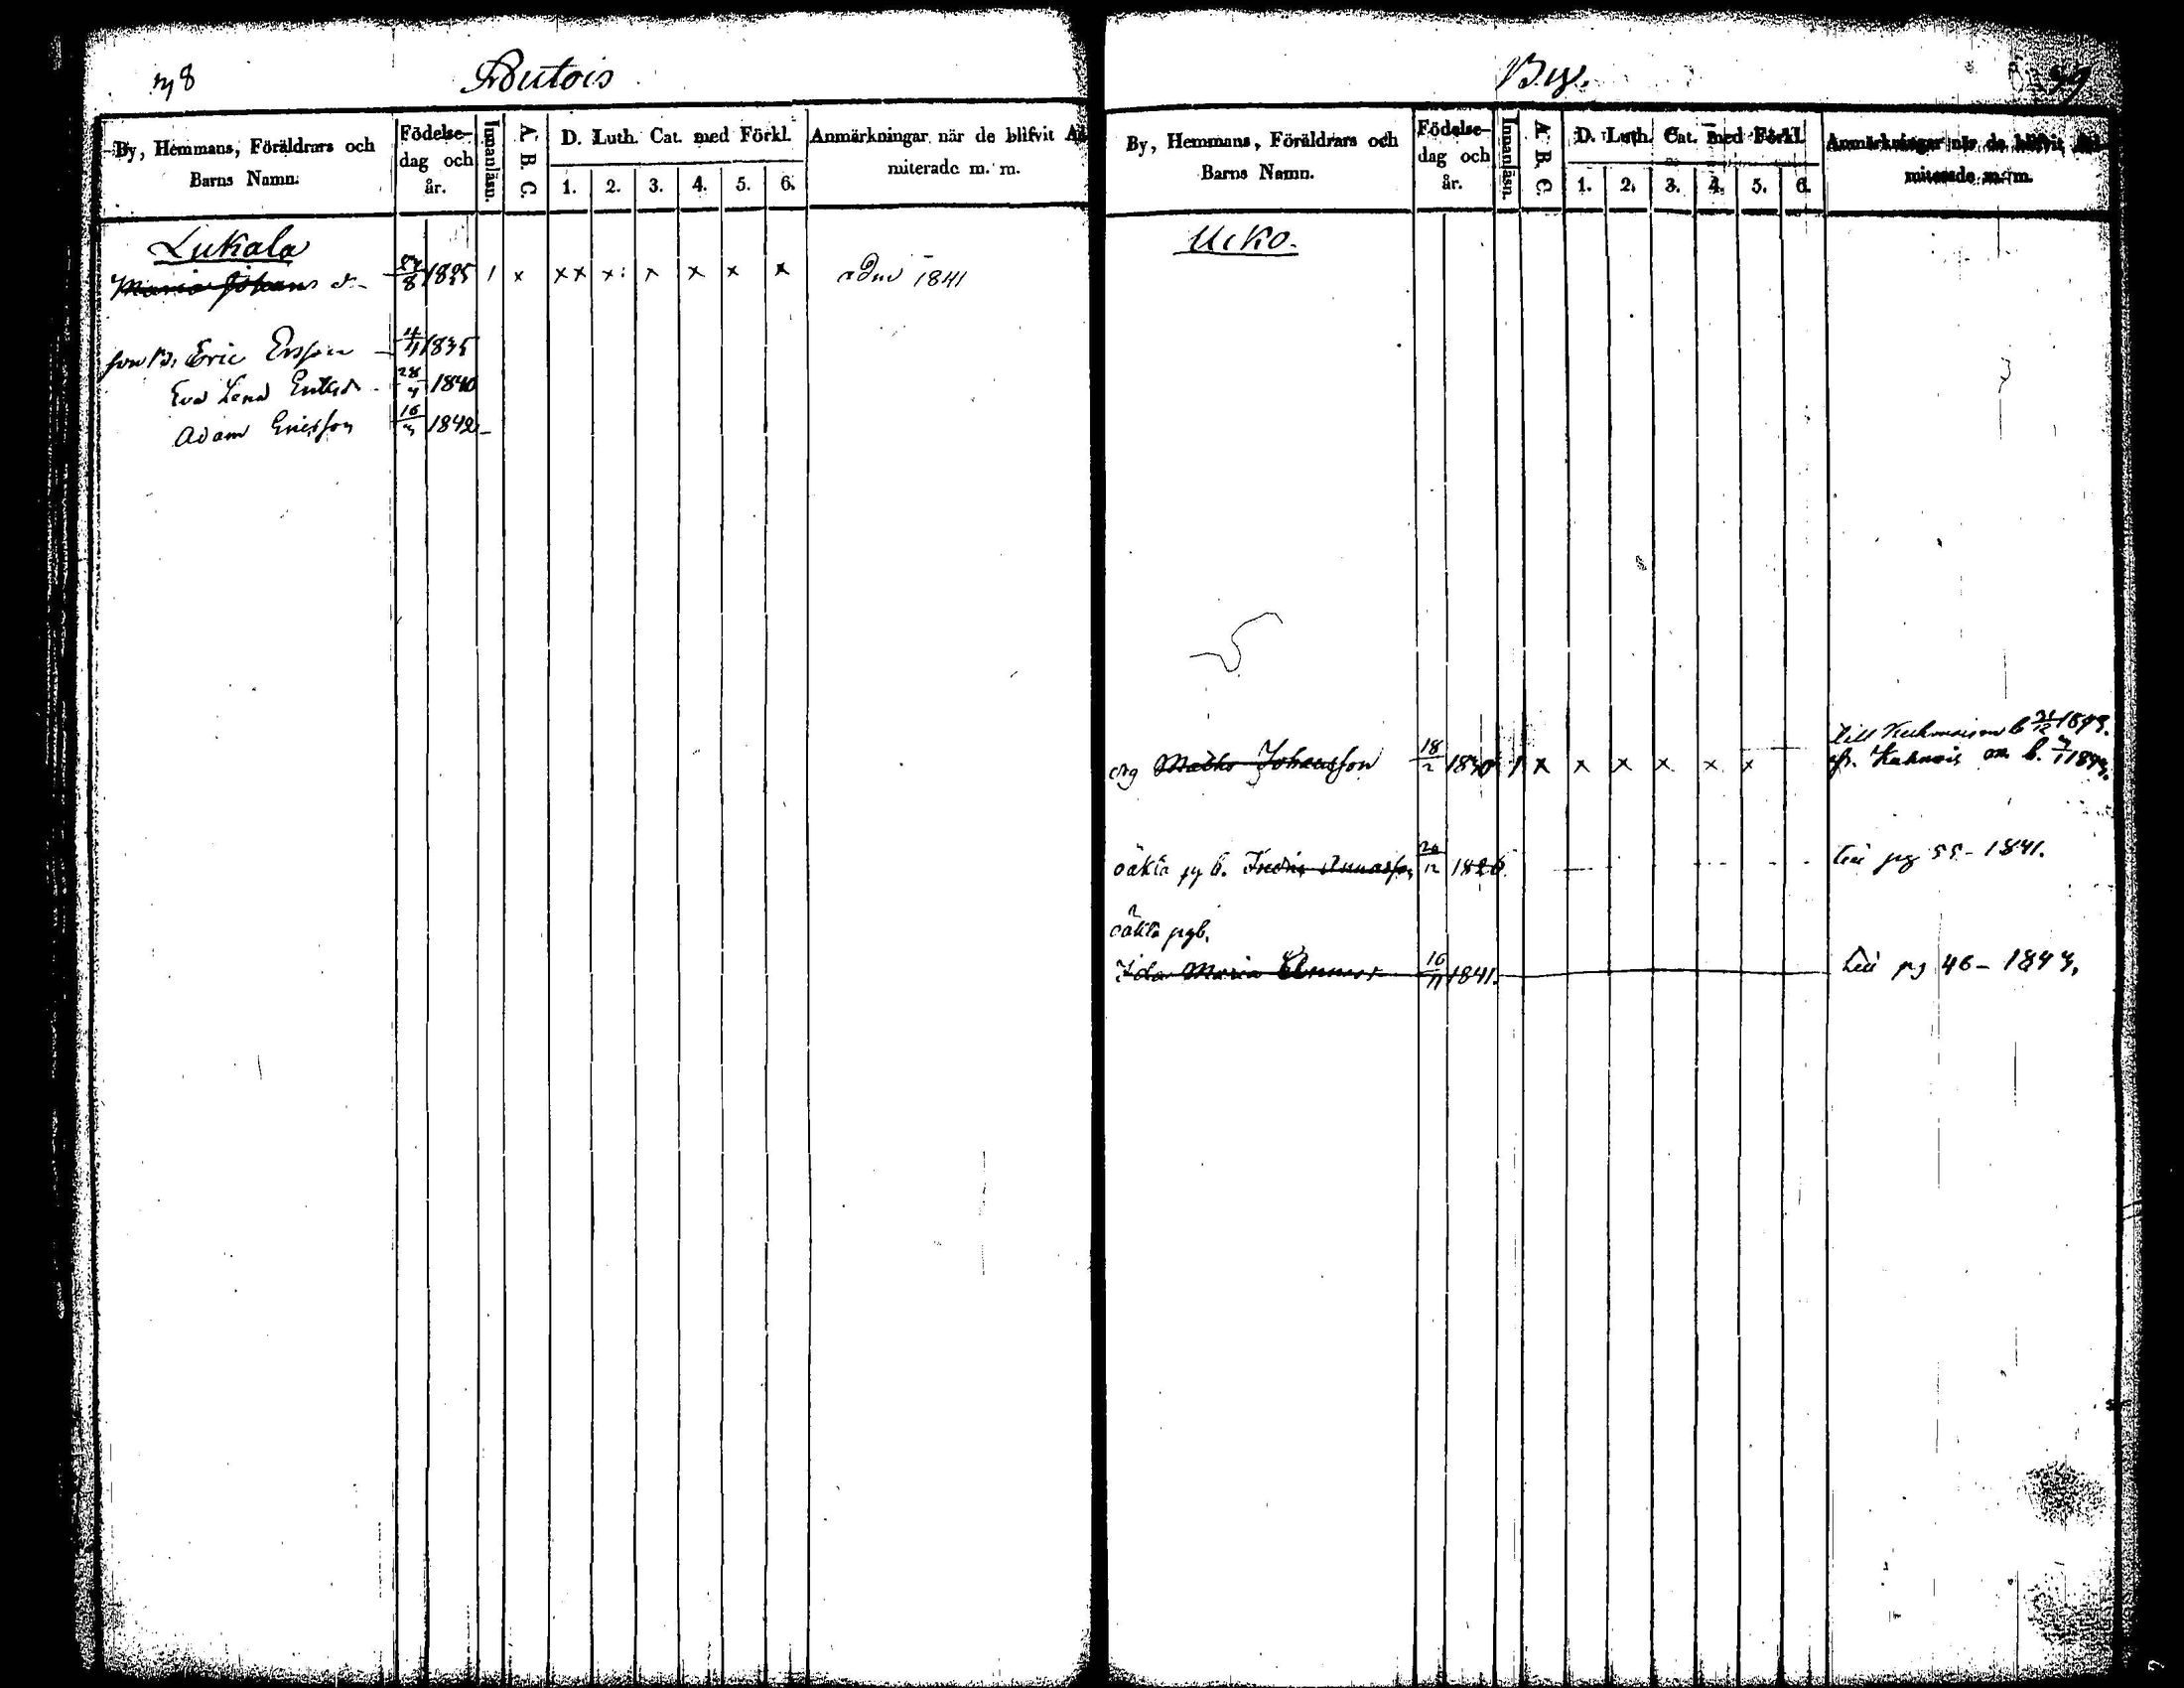 38 Autois
By, Hemmans, Föräldrars och Barns Namn. Födelse-dag och år. Innanläsn. A B C. D. Luth. Cat. med Förkl. 1. 2. 3. 4. 5. 6. Anmärkningar när de blifvit Ad miterade m. m.
Lukala
Maria Johans d. 8 1825 1 x xx x: x x x x adm 1841
son B. Eric Ersson 4/11 1835
Eva Lena Ericsd. 28 1840
Adam Ericsson 16/3 1842
By. 39
By, Hemmans, Föräldrars och Barns Namn. Födelse-dag och år. Innanläsn. A B C. D. Luth. Cat. med Förkl. 1. 2. 3. 4. 5. 6. Anmärkningar när de blifvit Ad miterade m. m.
Ucko.
till
Johansson 18/2 1830 1 x x x x x x b.
oäkta pg b. Annasson 20/12 1826 till pg 55 - 1841.
oäkta pgb.
Ida Maria Annas 16/11 1841. till pg 46 - 1843.